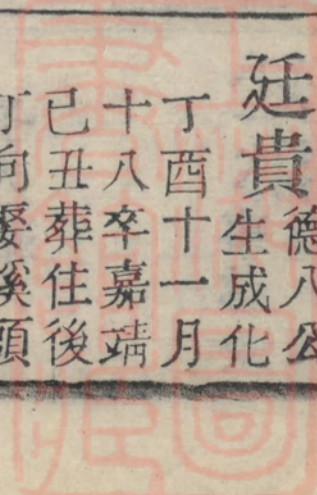 廷貴
德八公
生成化
丁酉十一月
十八卒嘉靖
己丑葬住後
丁向娶溪頭